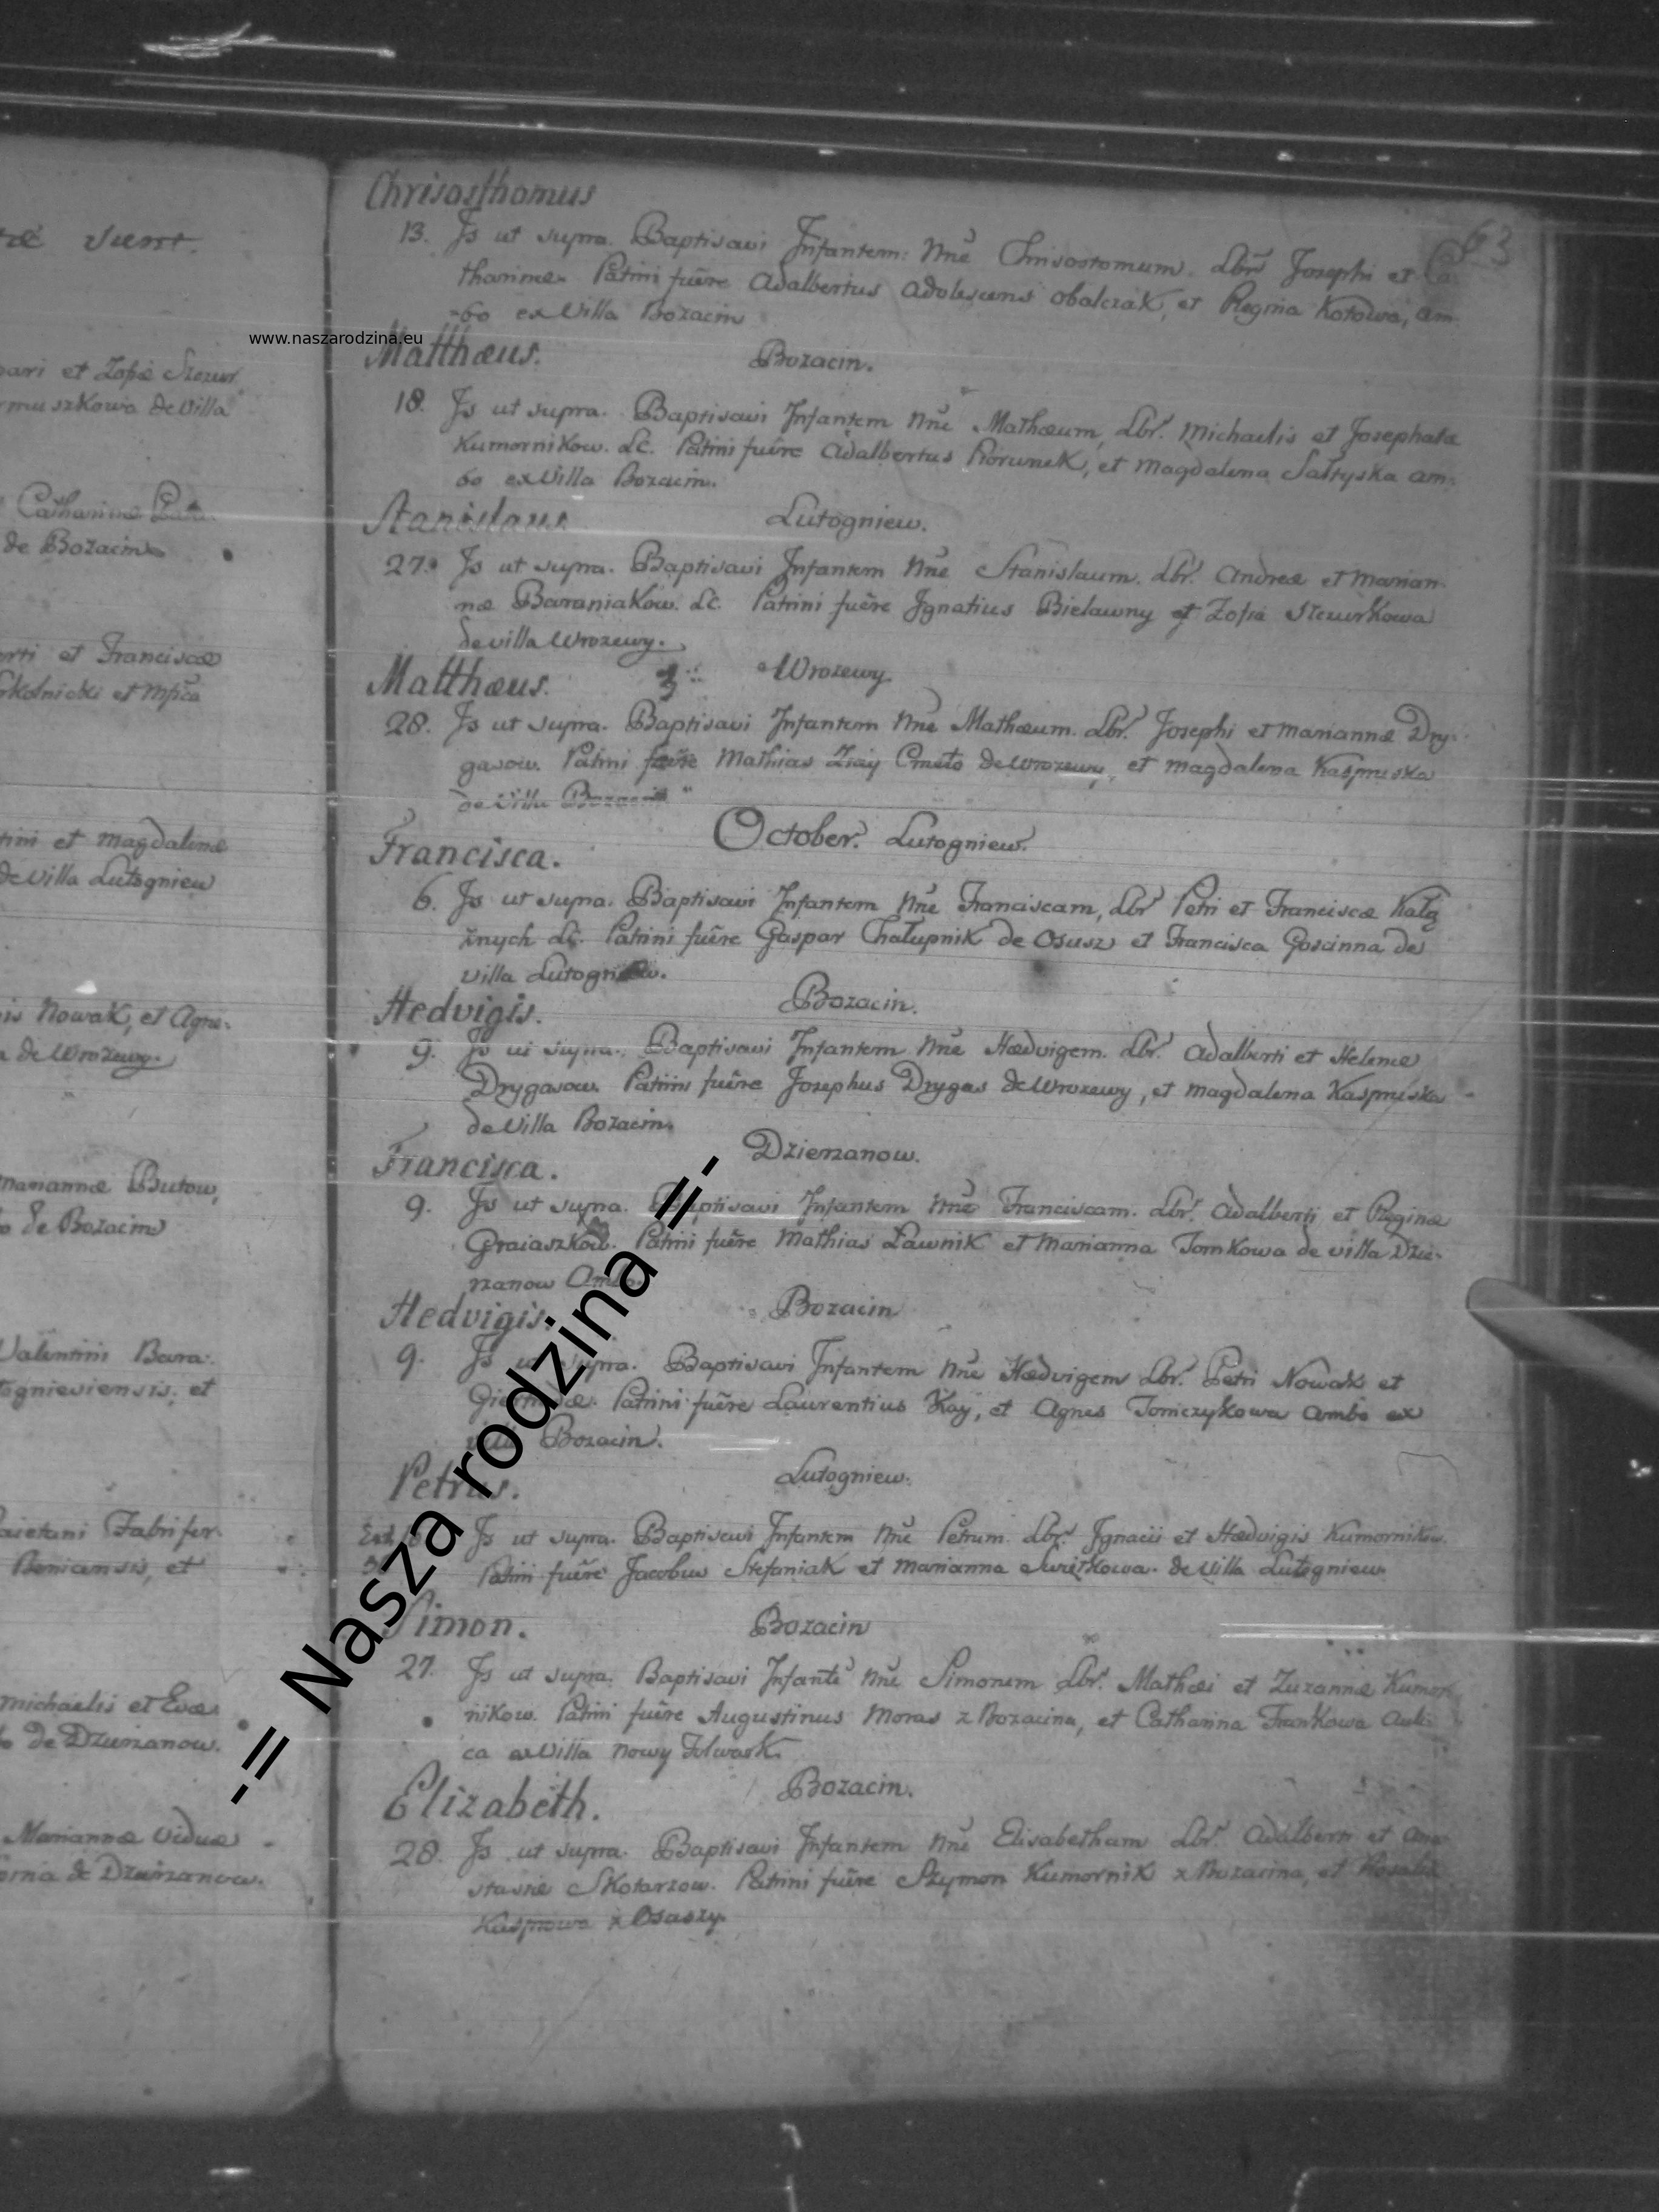 væ sunt.
ari et Zofiæ
muszkowa de Villa
Catharinæ
de Bozacin
rti et Franciscæ
Skolnicki et
tini et Magdalenæ
de Villa Lutogniew
is Nowak, et Agne-
a de Wrozewy.
Mariannæ Butow,
o de Bozacin
Valentini Bara-
tognieviensis, et
aietani Fabri fer-
Beniamsis, et
Michaelis et Evæ
de Dzierzanow.
Mariannæ Viduæ
de Dzierzanow.
63
Chrisosthomus
13. Is ut supra. Baptisavi Infantem: Nnē Chrisostomum. Lbr̄. Josephi et Ca
tharinæ. Patrini fuēre Adalbertus adolescens obalczak, et Regina Kotowa, am
-bo ex Villa Bozacin
www.naszarodzina.eu
Matthæus. Bozacin.
18. Is ut supra. Baptisavi Infantem Nnē Mathæum, Lbr. Michaelis et Josephatæ
Kumornikow. Lc. Patrini fuēre Adalbertus Piorunek, et Magdalena Sałtyska am-
bo ex Villa Bozacin.
Stanislaus Lutogniew.
27. Is ut supra. Baptisavi Infantem Nnē Stanislaum. Lbr. Andreæ et Marian-
næ Baraniakow. Lc. Patrini fuēre Ignatius Bielawny et Zofia Szczurkowa
de villa Wrozewy.
Matthæus. Wrozewy.
28. Is ut supra. Baptisavi Infantem Nnē Mathæum. Lbr. Josephi et Mariannæ Dry-
gasow. Patrini fuēre Mathias Ziay Cmeto de Wrozewy, et Magdalena Kaspruska
de Villa Bozacin
October. Lutogniew.
Francisca.
6. Is ut supra. Baptisavi Infantem Nnē Franciscam, Lbr Petri et Franciscæ Kałą
żnych Lc. Patrini fuēre Gaspar Chałupnik de Osusz et Francisca Goscinna de
villa Lutogniew.
Hedvigis. Bozacin.
9. Is ut supra. Baptisavi Infantem Nnē Hædvigem. Lbr. Adalberti et Helenæ
Drygasow. Patrini fuēre Josephus Drygas de Wrozewy, et Magdalena Kaspruska
de Villa Bozacin.
Francisca. Dzierzanow.
9. Is ut supra. Baptisavi Infantem Nnē Franciscam. Lbr. Adalberti et Reginæ
Graiaszkow. Patrini fuēre Mathias Ławnik et Marianna Tomkowa de villa Dzie-
rzanow Ambo.
Hedvigis. Bozacin
9. Is ut supra. Baptisavi Infantem Nnē Hædvigem Lbr. Petri Nowak et
Patrini fuēre Laurentius Kay, et Agnes Tomczykowa ambo ex
villa Bozacin.
Petrus. Lutogniew.
Is ut supra. Baptisavi Infantem Nnē Petrum Lbr. Ignacii et Hædvigis Kumornikow.
Patrini fuēre Jacobus Stefaniak et Marianna Swiętkowa. de Villa Lutogniew
Simon. Bozacin
27. Is ut supra. Baptisavi Infantē Nnē Simonem Lbr. Mathæi et Zuzannæ Kumor
nikow. Patrini fuēre Augustinus Moras z Bozacina, et Catharina Frankowa Auli
ca ex Villa Nowy Folwark.
Elizabeth. Bozacin.
28. Is ut supra. Baptisavi Infantem Nnē Elisabetham Lbr. Adalberti et Ana-
stasiæ Skotarzow. Patrini fuēre Szymon Kumornik z Bozacina, et Rosalia
z Osuszy.
-= Nasza rodzina =-